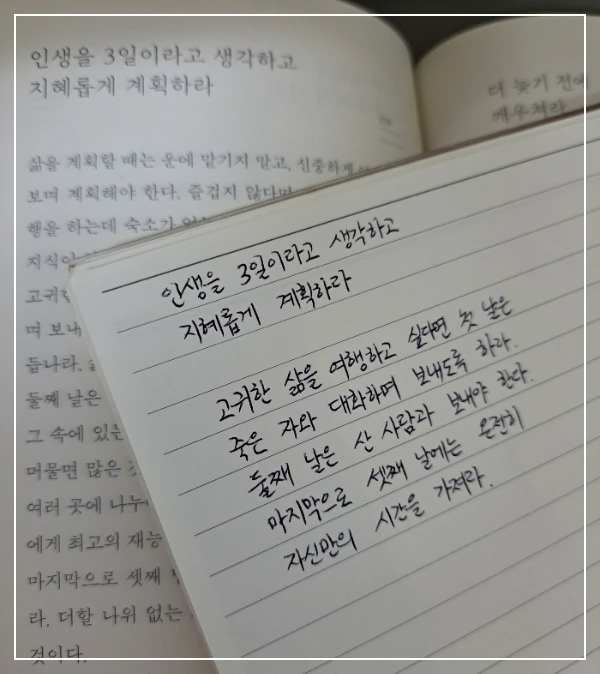 인생을 3일이라고 생각하고
지혜롭게 계획하라
삶을 계획할 때는 운에 맡기지 말고, 신중하게
보며 계획해야 한다. 즐겁지 않다면
행을 하는데 숙소가
지식이
고귀한
며 보내
듭나라.
둘째 날은
그 속에 있는
머물면 많은
여러 곳에 나누
에게 최고의 재능
마지막으로 셋째
라. 더할 나위 없는
것이다.
더 늦기 전에
깨우쳐라
인생을 3일이라고 생각하고
지혜롭게 계획하라
고귀한 삶을 여행하고 싶다면 첫 날은
죽은 자와 대화하며 보내도록 하라.
둘째 날은 산 사람과 보내야 한다.
마지막으로 셋째 날에는 온전히
자신만의 시간을 가져라.